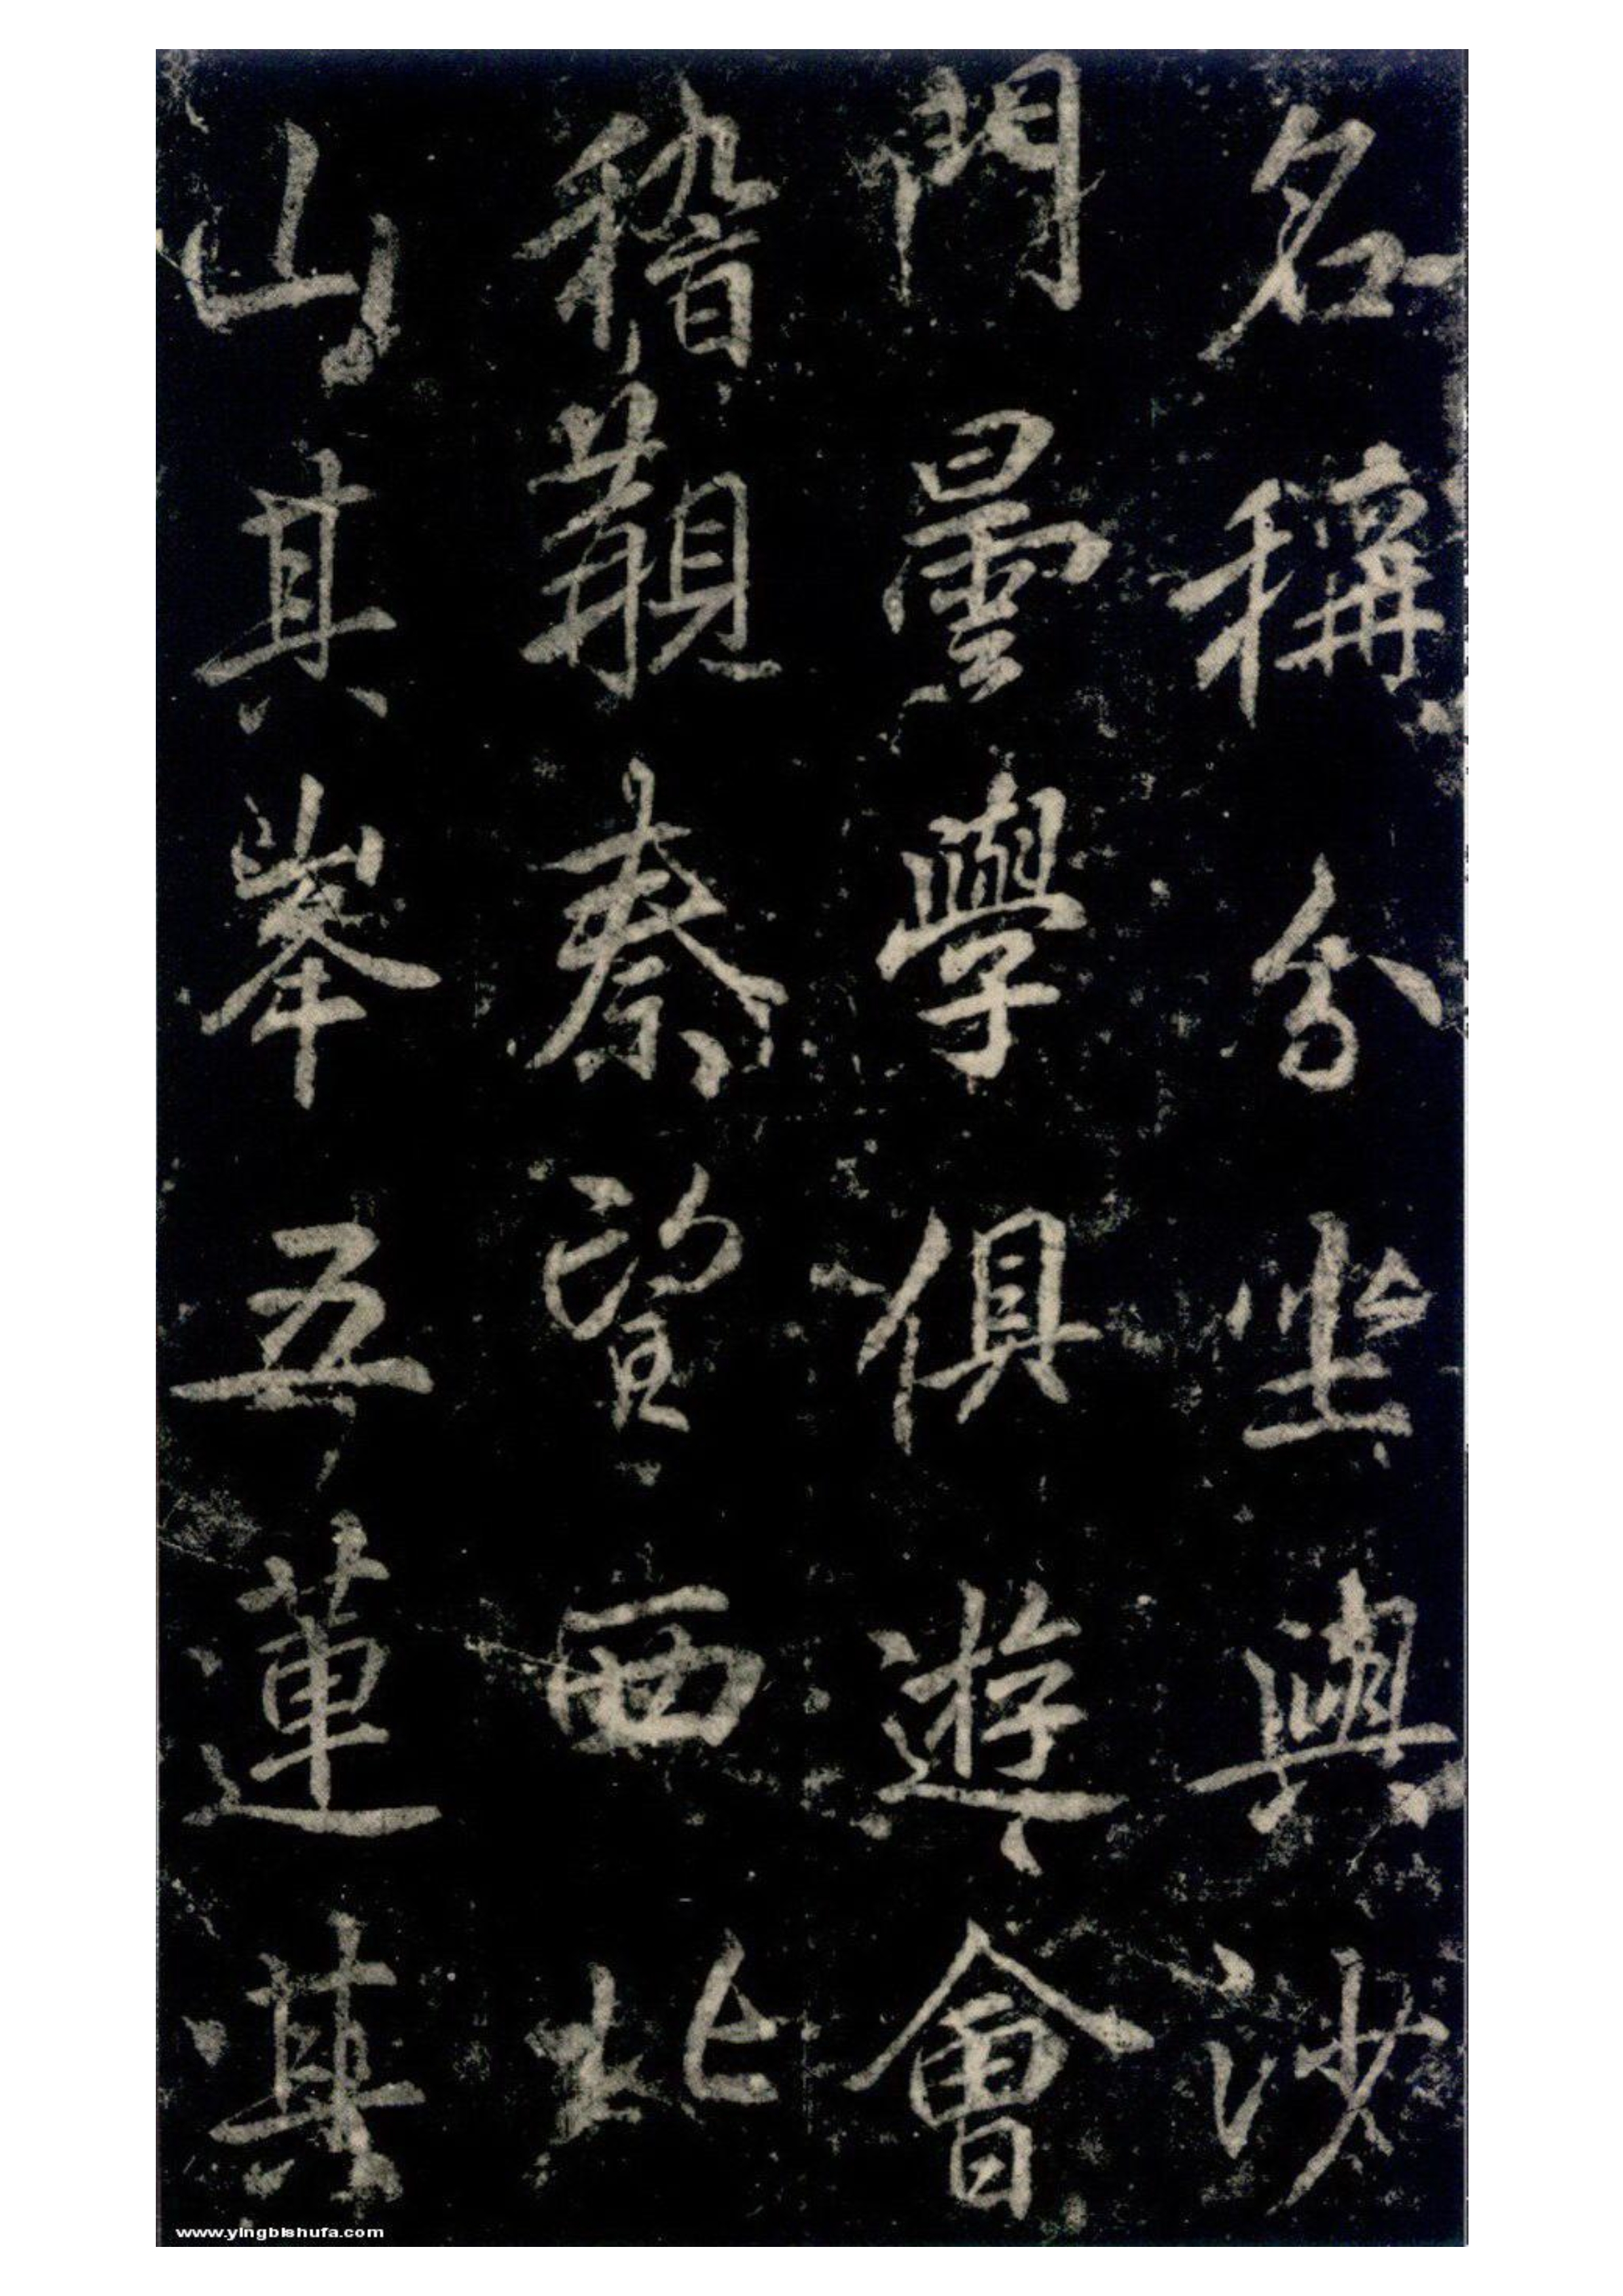 名稱分坐與沙
門曇學俱遊會
稽覯秦望西北
山其峯五蓮其
www.yingbishufa.com